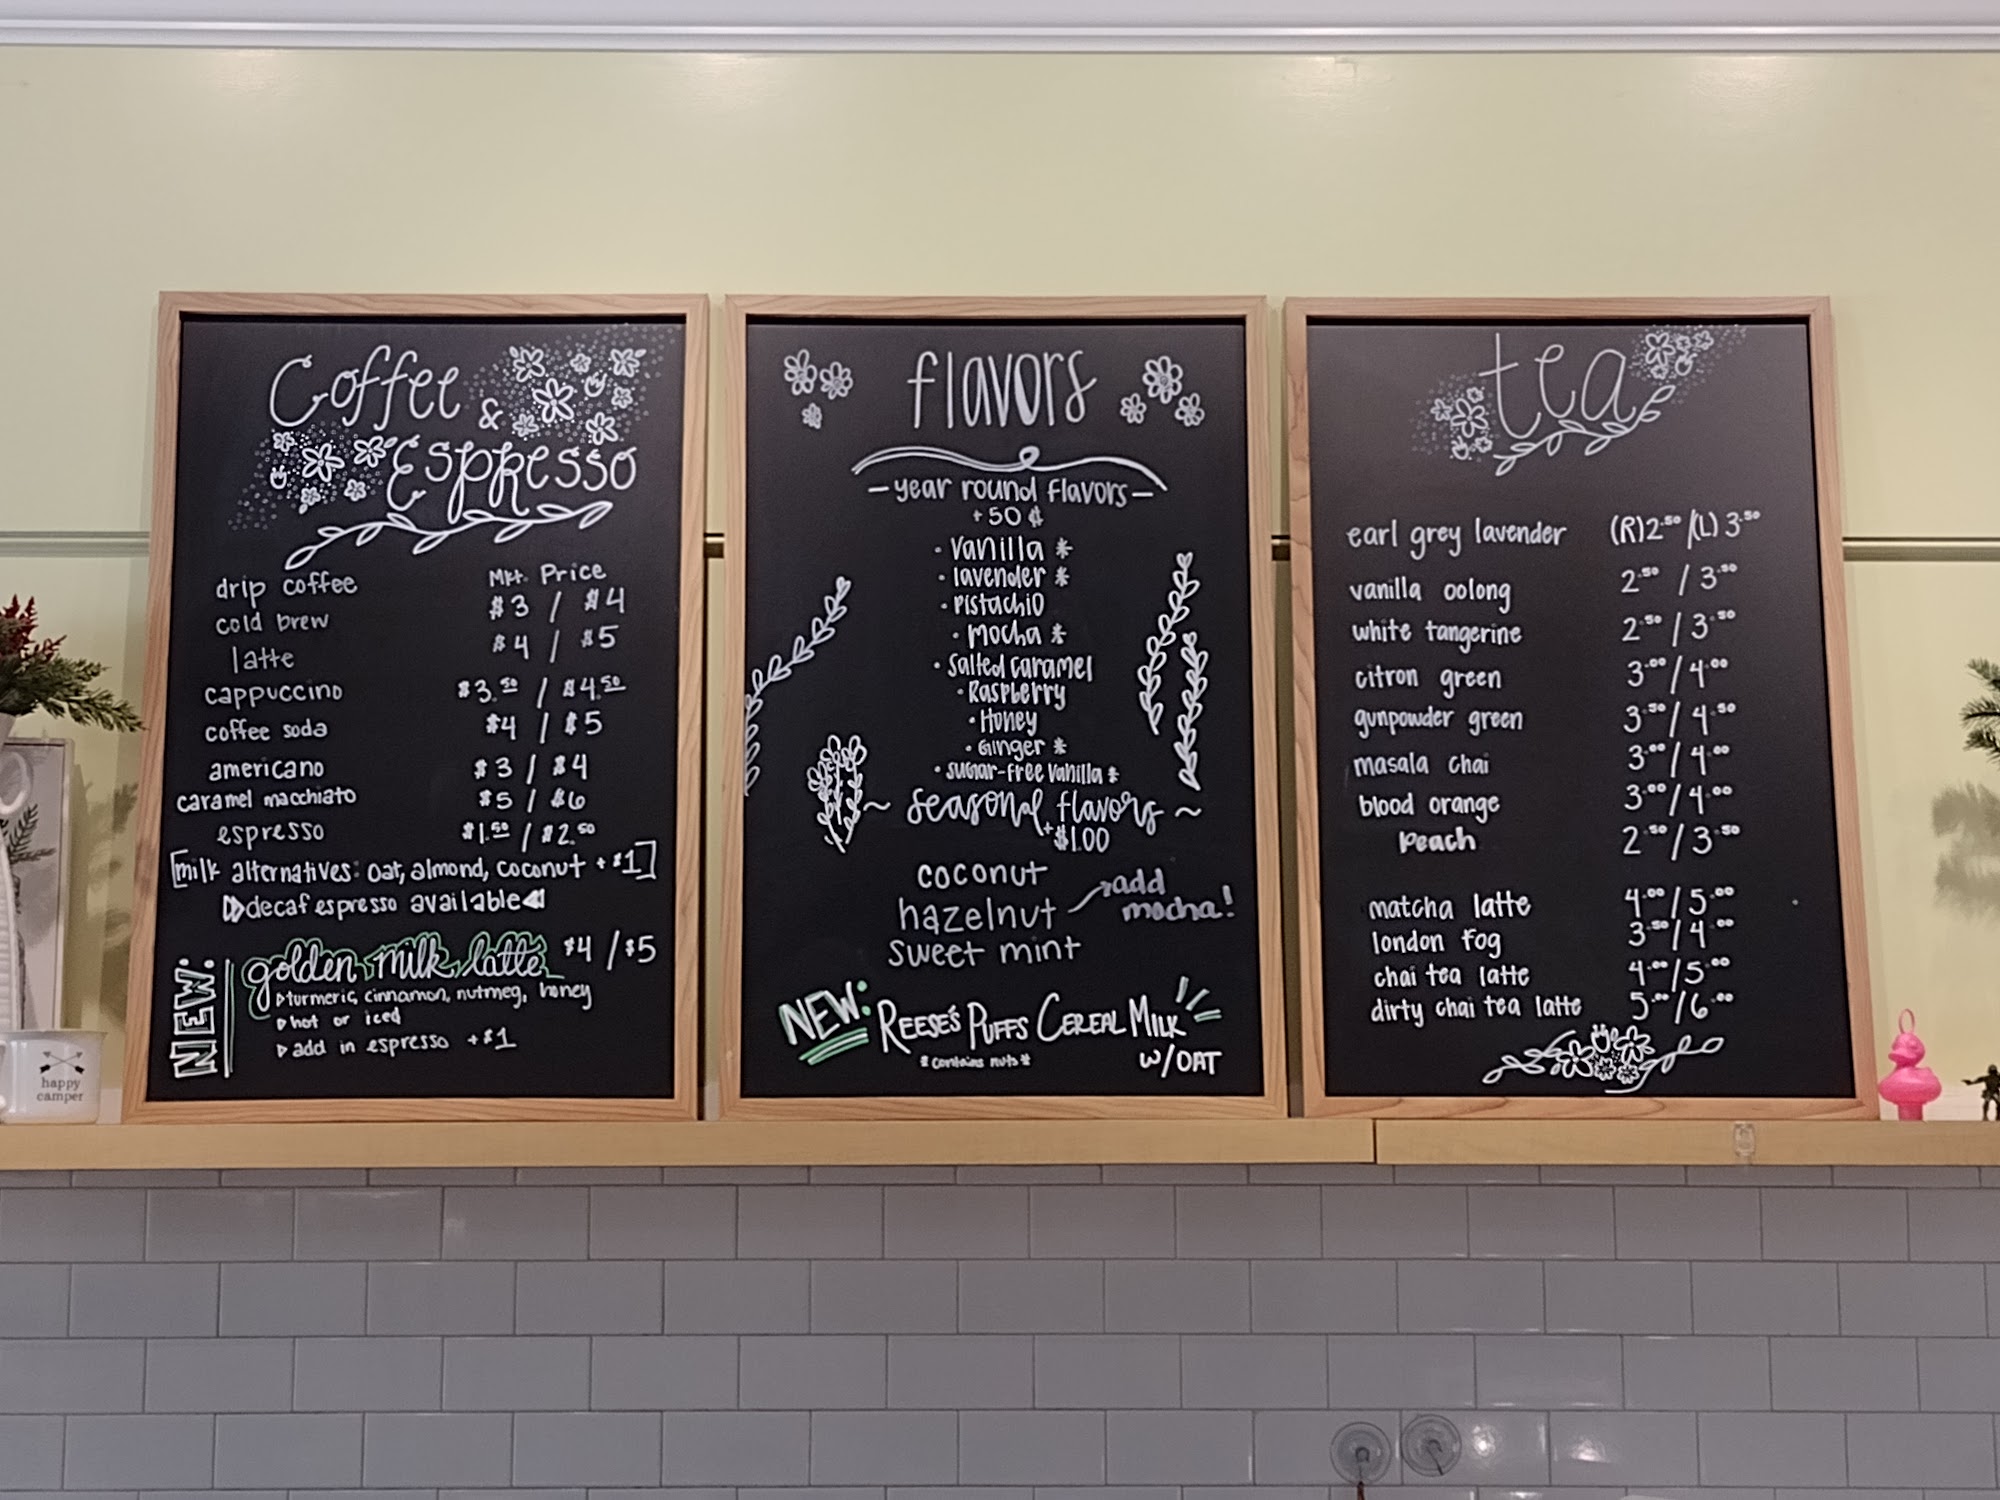 Coffee
& Espresso
drip coffee Mkt. Price
cold brew $3 / $4
latte $4 / $5
cappuccino $3.50 / $4.50
coffee soda $4 / $5
americano $3 / $4
caramel macchiato $5 / $6
espresso $1.50 / $2.50
[milk alternatives: oat, almond, coconut + $1]
decaf espresso available
NEW:
golden milk latte $4 / $5
turmeric, cinnamon, nutmeg, honey
hot or iced
add in espresso +$1
flavors
- year round flavors -
+ 50 ¢
• vanilla *
• lavender *
• Pistachio
• Mocha *
• Salted caramel
• Raspberry
• Honey
• Ginger *
• sugar-free vanilla *
~ seasonal flavors ~
+ $1.00
coconut
hazelnut → add mocha!
sweet mint
NEW: REESE'S PUFFS CEREAL MILK
*contains nuts* W/OAT
tea
earl grey lavender (R) 2.50 / (L) 3.50
vanilla oolong 2.50 / 3.50
white tangerine 2.50 / 3.50
citron green 3.00 / 4.00
gunpowder green 3.50 / 4.50
masala chai 3.00 / 4.00
blood orange 3.00 / 4.00
Peach 2.50 / 3.50
matcha latte 4.00 / 5.00
london fog 3.50 / 4.00
chai tea latte 4.00 / 5.00
dirty chai tea latte 5.00 / 6.00
happy
camper